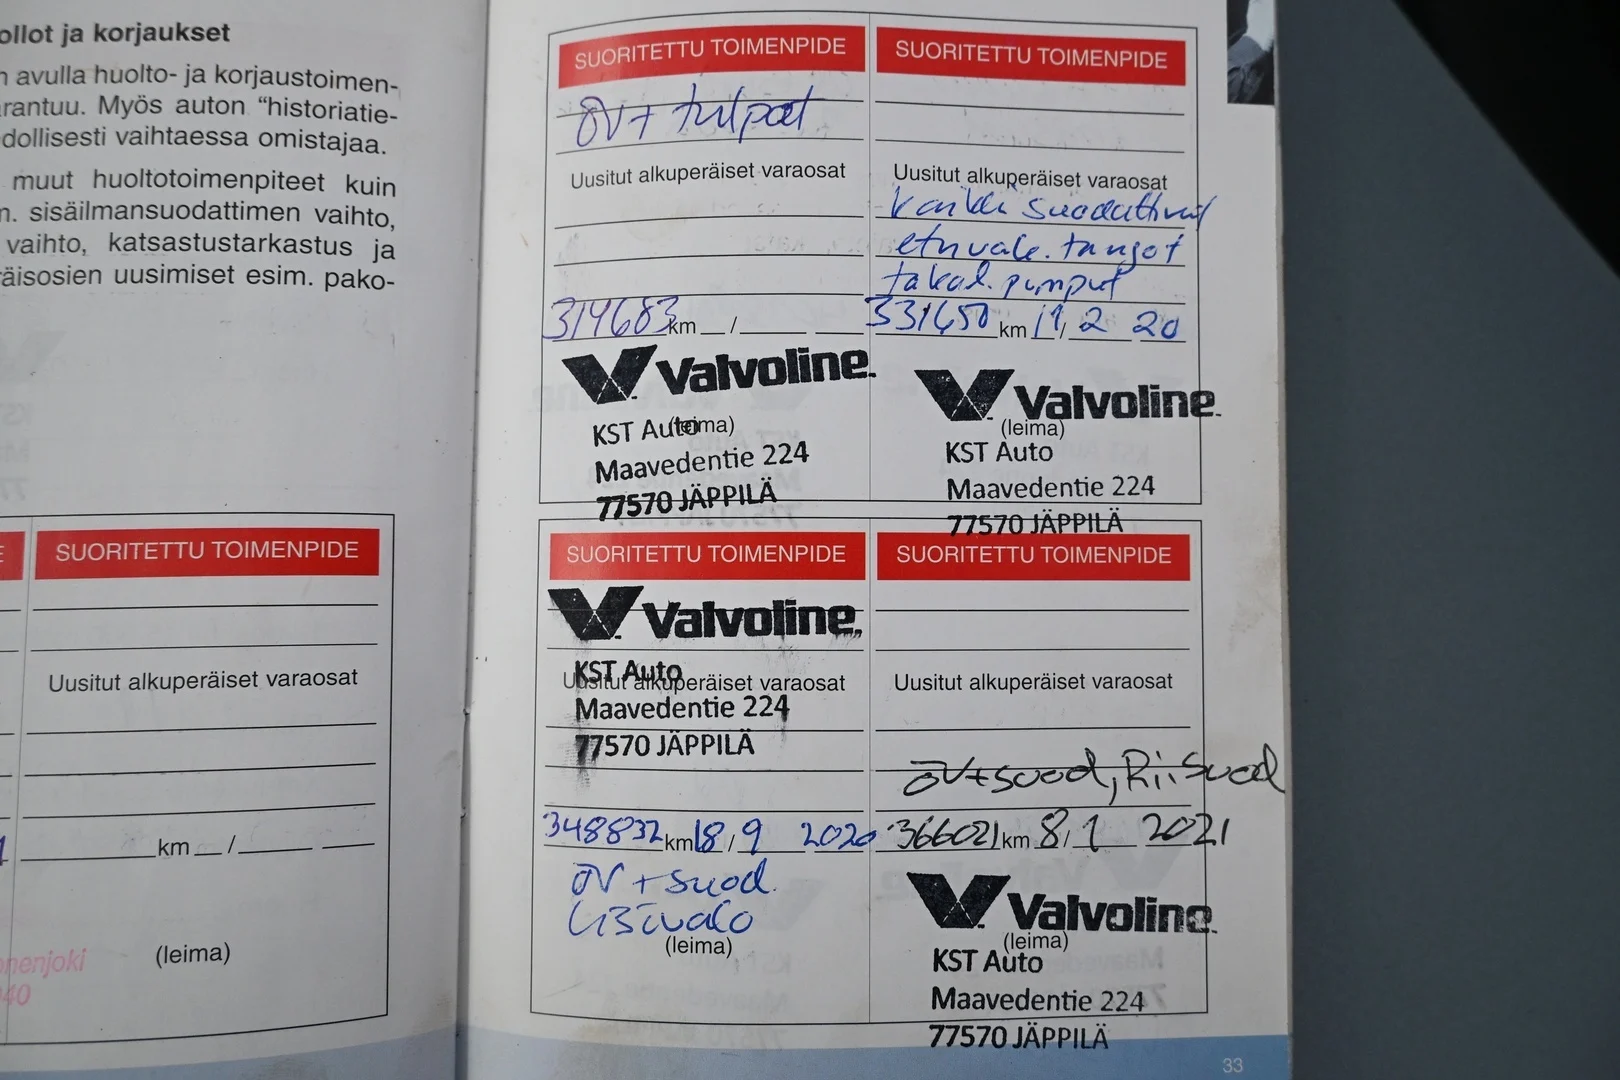 ollot ja korjaukset
n avulla huolto- ja korjaustoimen-
rantuu. Myös auton “historiatie-
dollisesti vaihtaessa omistajaa.
muut huoltotoimenpiteet kuin
n. sisäilmansuodattimen vaihto,
vaihto, katsastustarkastus ja
äisosien uusimiset esim. pako-
E
SUORITETTU TOIMENPIDE
Uusitut alkuperäiset varaosat
km /
(leima)
nenjoki
40
SUORITETTU TOIMENPIDE
ÖV + tulpat
Uusitut alkuperäiset varaosat
314683 km /
Valvoline
(leima)
KST Auto
Maavedentie 224
77570 JÄPPILÄ
SUORITETTU TOIMENPIDE
Uusitut alkuperäiset varaosat
kaikki suodattimet
etuvak. tangot
takal. pumput
km 2 20
Valvoline
(leima)
KST Auto
Maavedentie 224
77570 JÄPPILÄ
SUORITETTU TOIMENPIDE
Valvoline
KST Auto
Uusitut alkuperäiset varaosat
Maavedentie 224
77570 JÄPPILÄ
348832 km 18/9 2020
ÖV + suod.
Lisävalo
(leima)
SUORITETTU TOIMENPIDE
Uusitut alkuperäiset varaosat
ÖV+suod, Rii.suod
366021 km 8/1 2021
Valvoline
(leima)
KST Auto
Maavedentie 224
77570 JÄPPILÄ
33